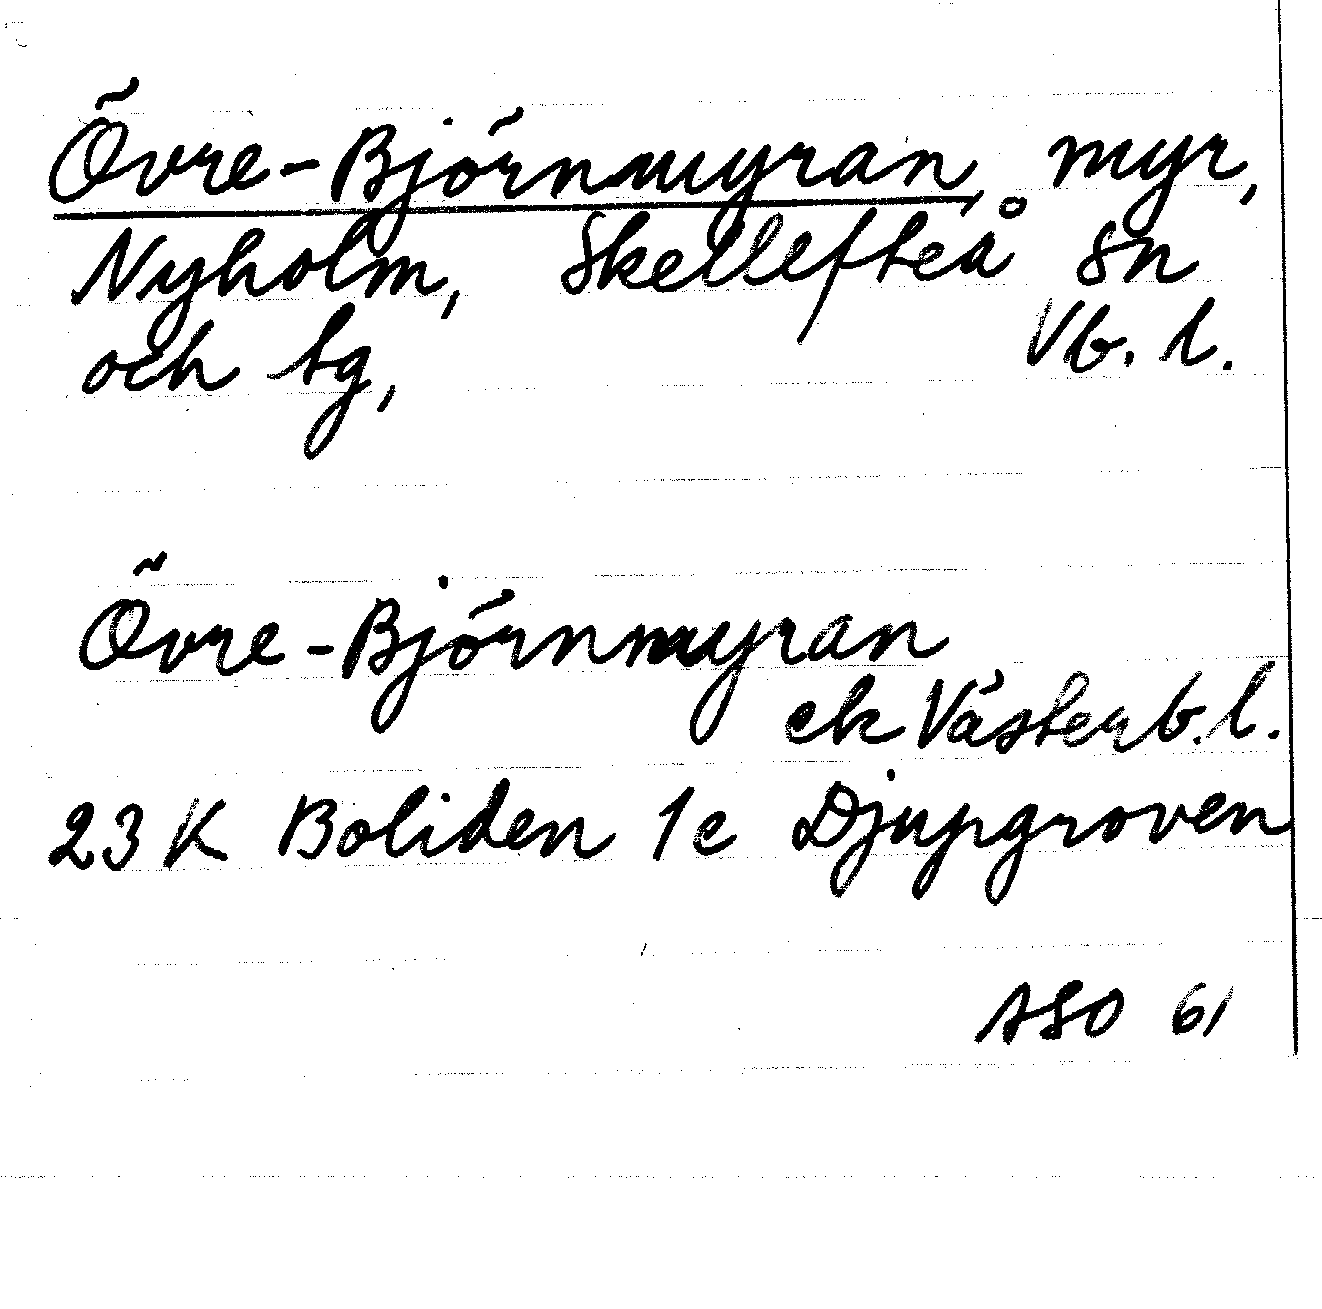 Övre-Björnmyran, myr,
Nyholm, Skellefteå sn
och tg, Vb. l.
Övre-Björnmyran
ek Västerb. l.
23 K Boliden 1 e Djupgroven
ASO 61